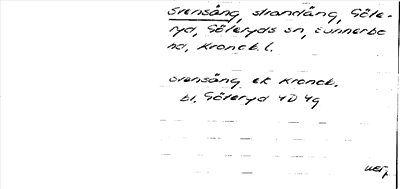 Svensäng, strandäng, Göte-
ryd, Göteryds sn, Sunnerbo
hd, Kronob. l.
Svensäng ek Kronob.
bl. Göteryd 4D 4g